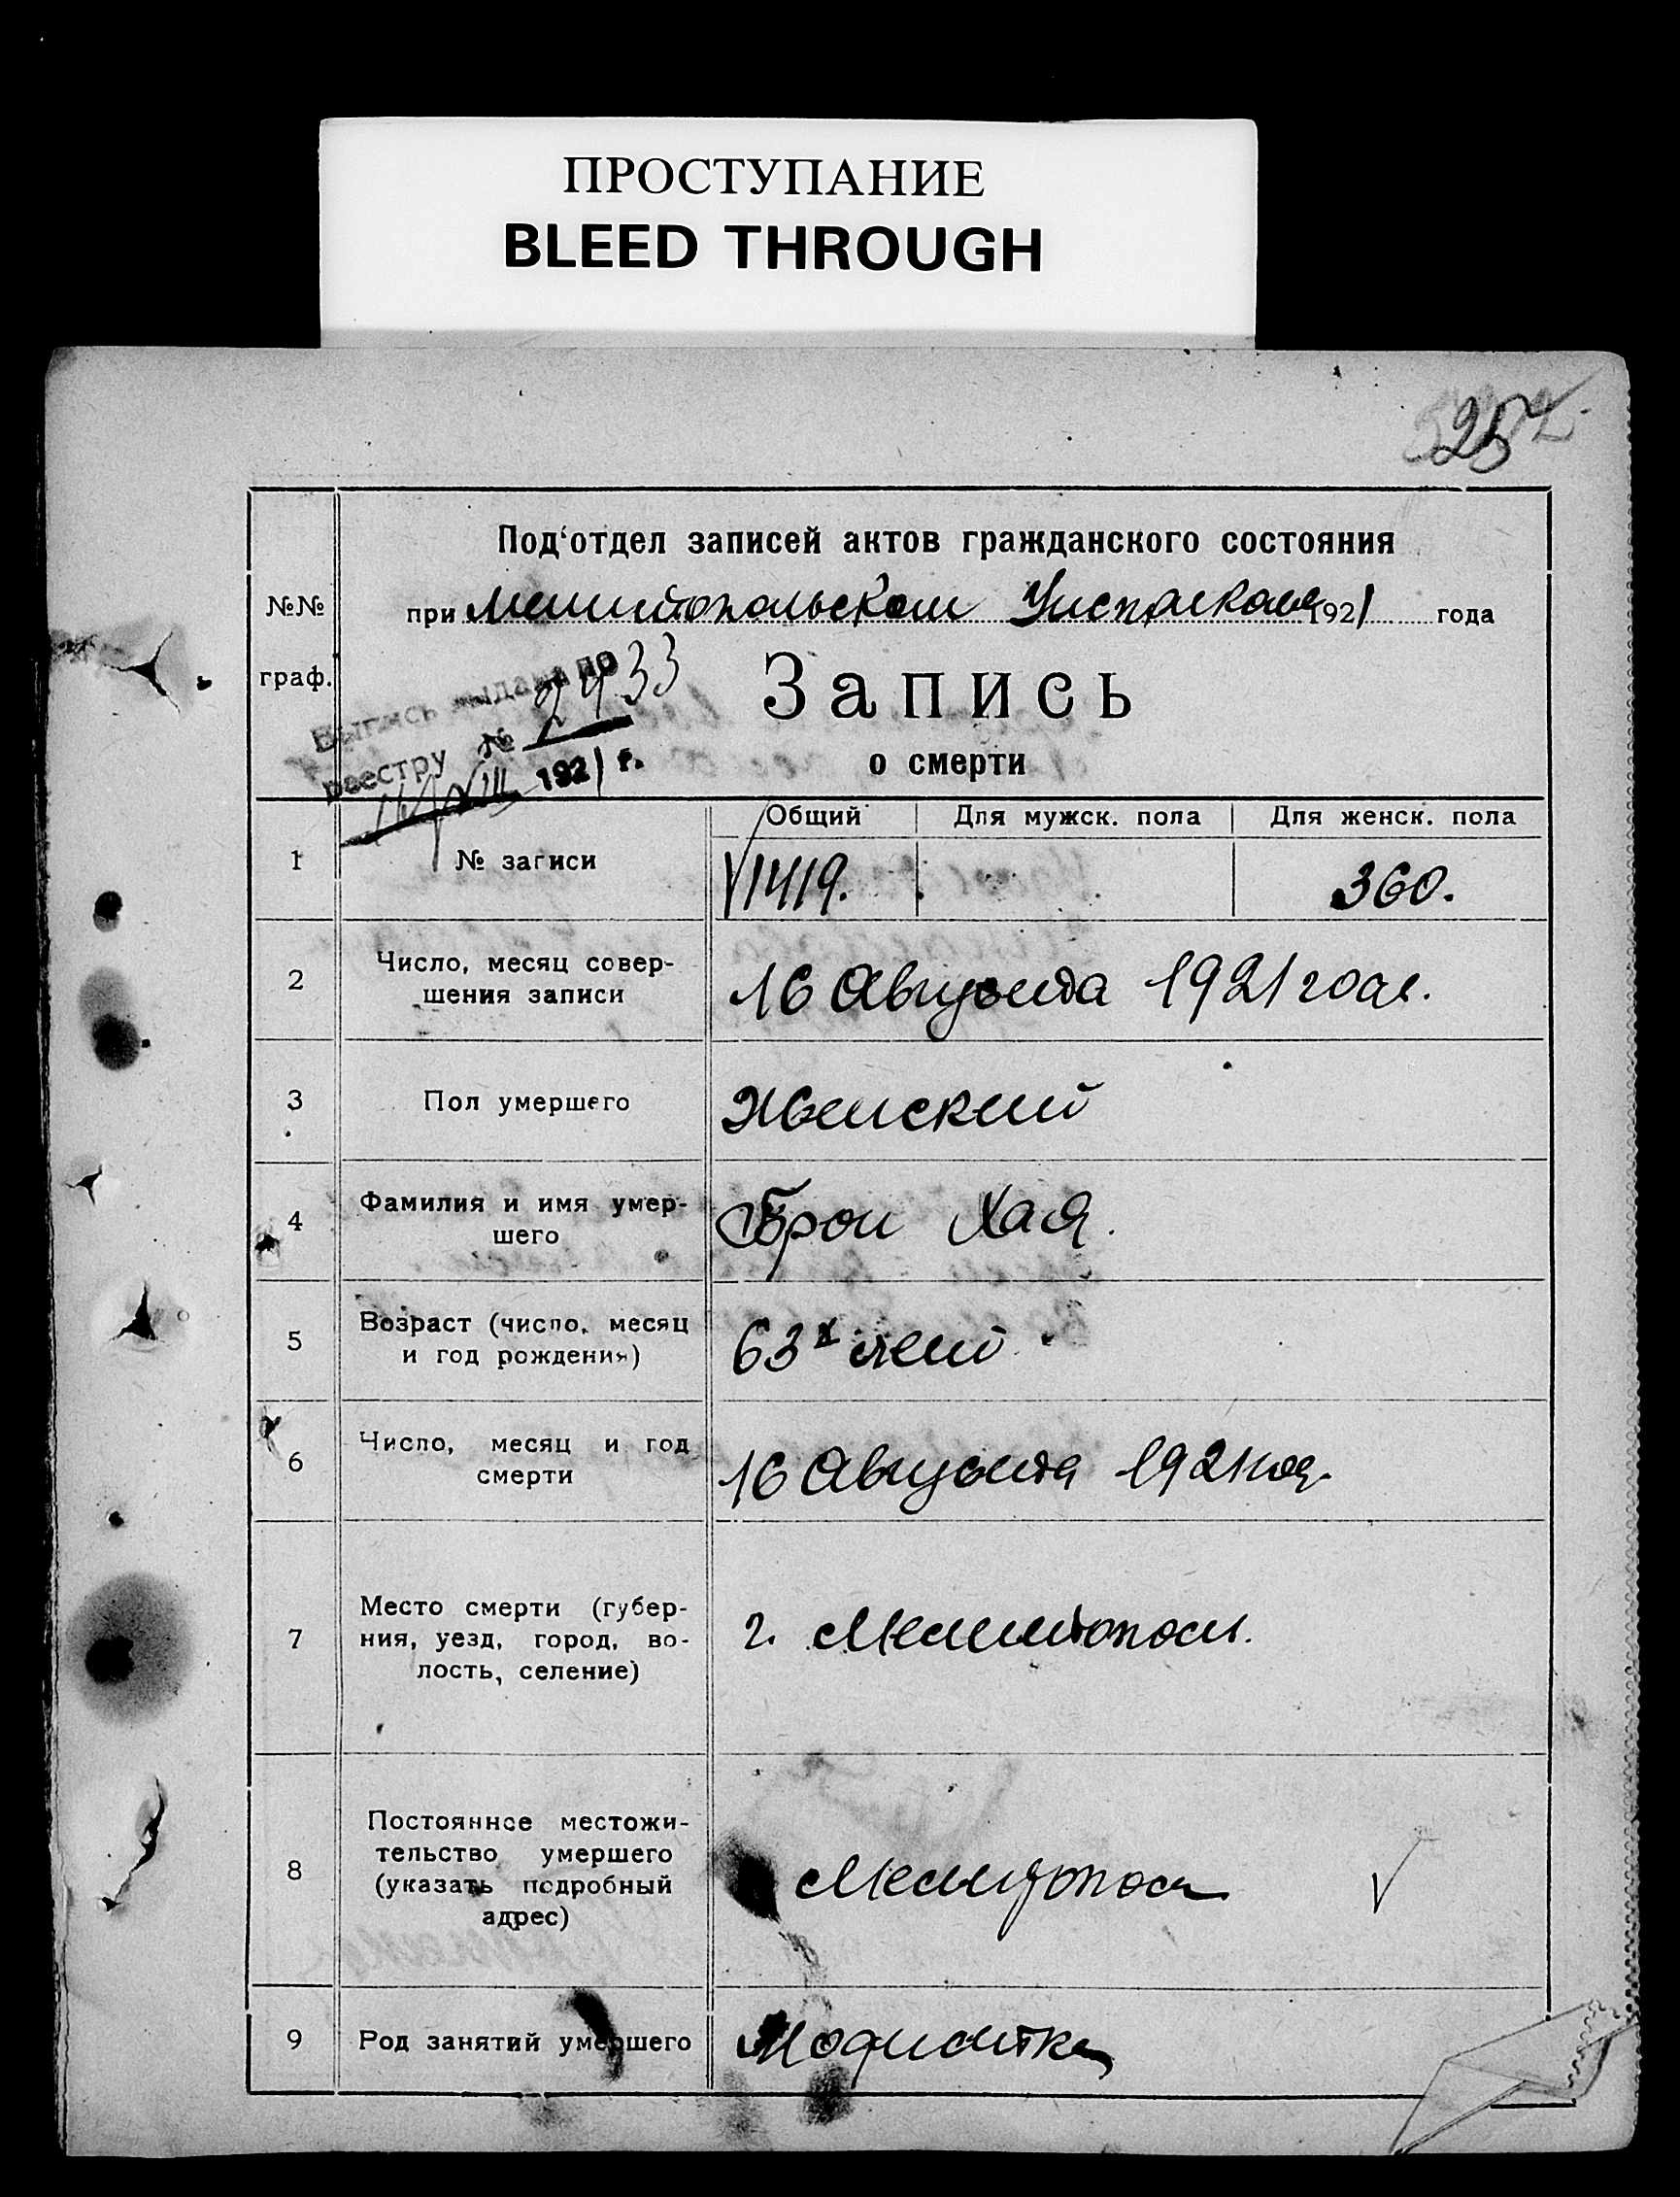 ПРОСТУПАНИЕ
BLEED THROUGH
Под‘отдел записей актов гражданского состояния
№№ граф.
при Мелитопольском Уисполкоме 1921 года
Выпись выдана по
реестру № 2433
16/VIII 1921 г.
Запись
о смерти
Общий Для мужск. пола Для женск. пола
1 № записи 1419. 360.
2 Число, месяц совер-
шения записи 16 Августа 1921 года.
3 Пол умершего Женский
4 Фамилия и имя умер-
шего Брон Хая.
5 Возраст (число, месяц
и год рождения) 63х лет
6 Число, месяц и год
смерти 16 Августа 1921 год.
7 Место смерти (губер-
ния, уезд, город, во-
лость, селение) г. Мелитополь.
8 Постоянное местожи-
тельство умершего
(указать подробный
адрес) Мелитополь
9 Род занятий умершего Модистка